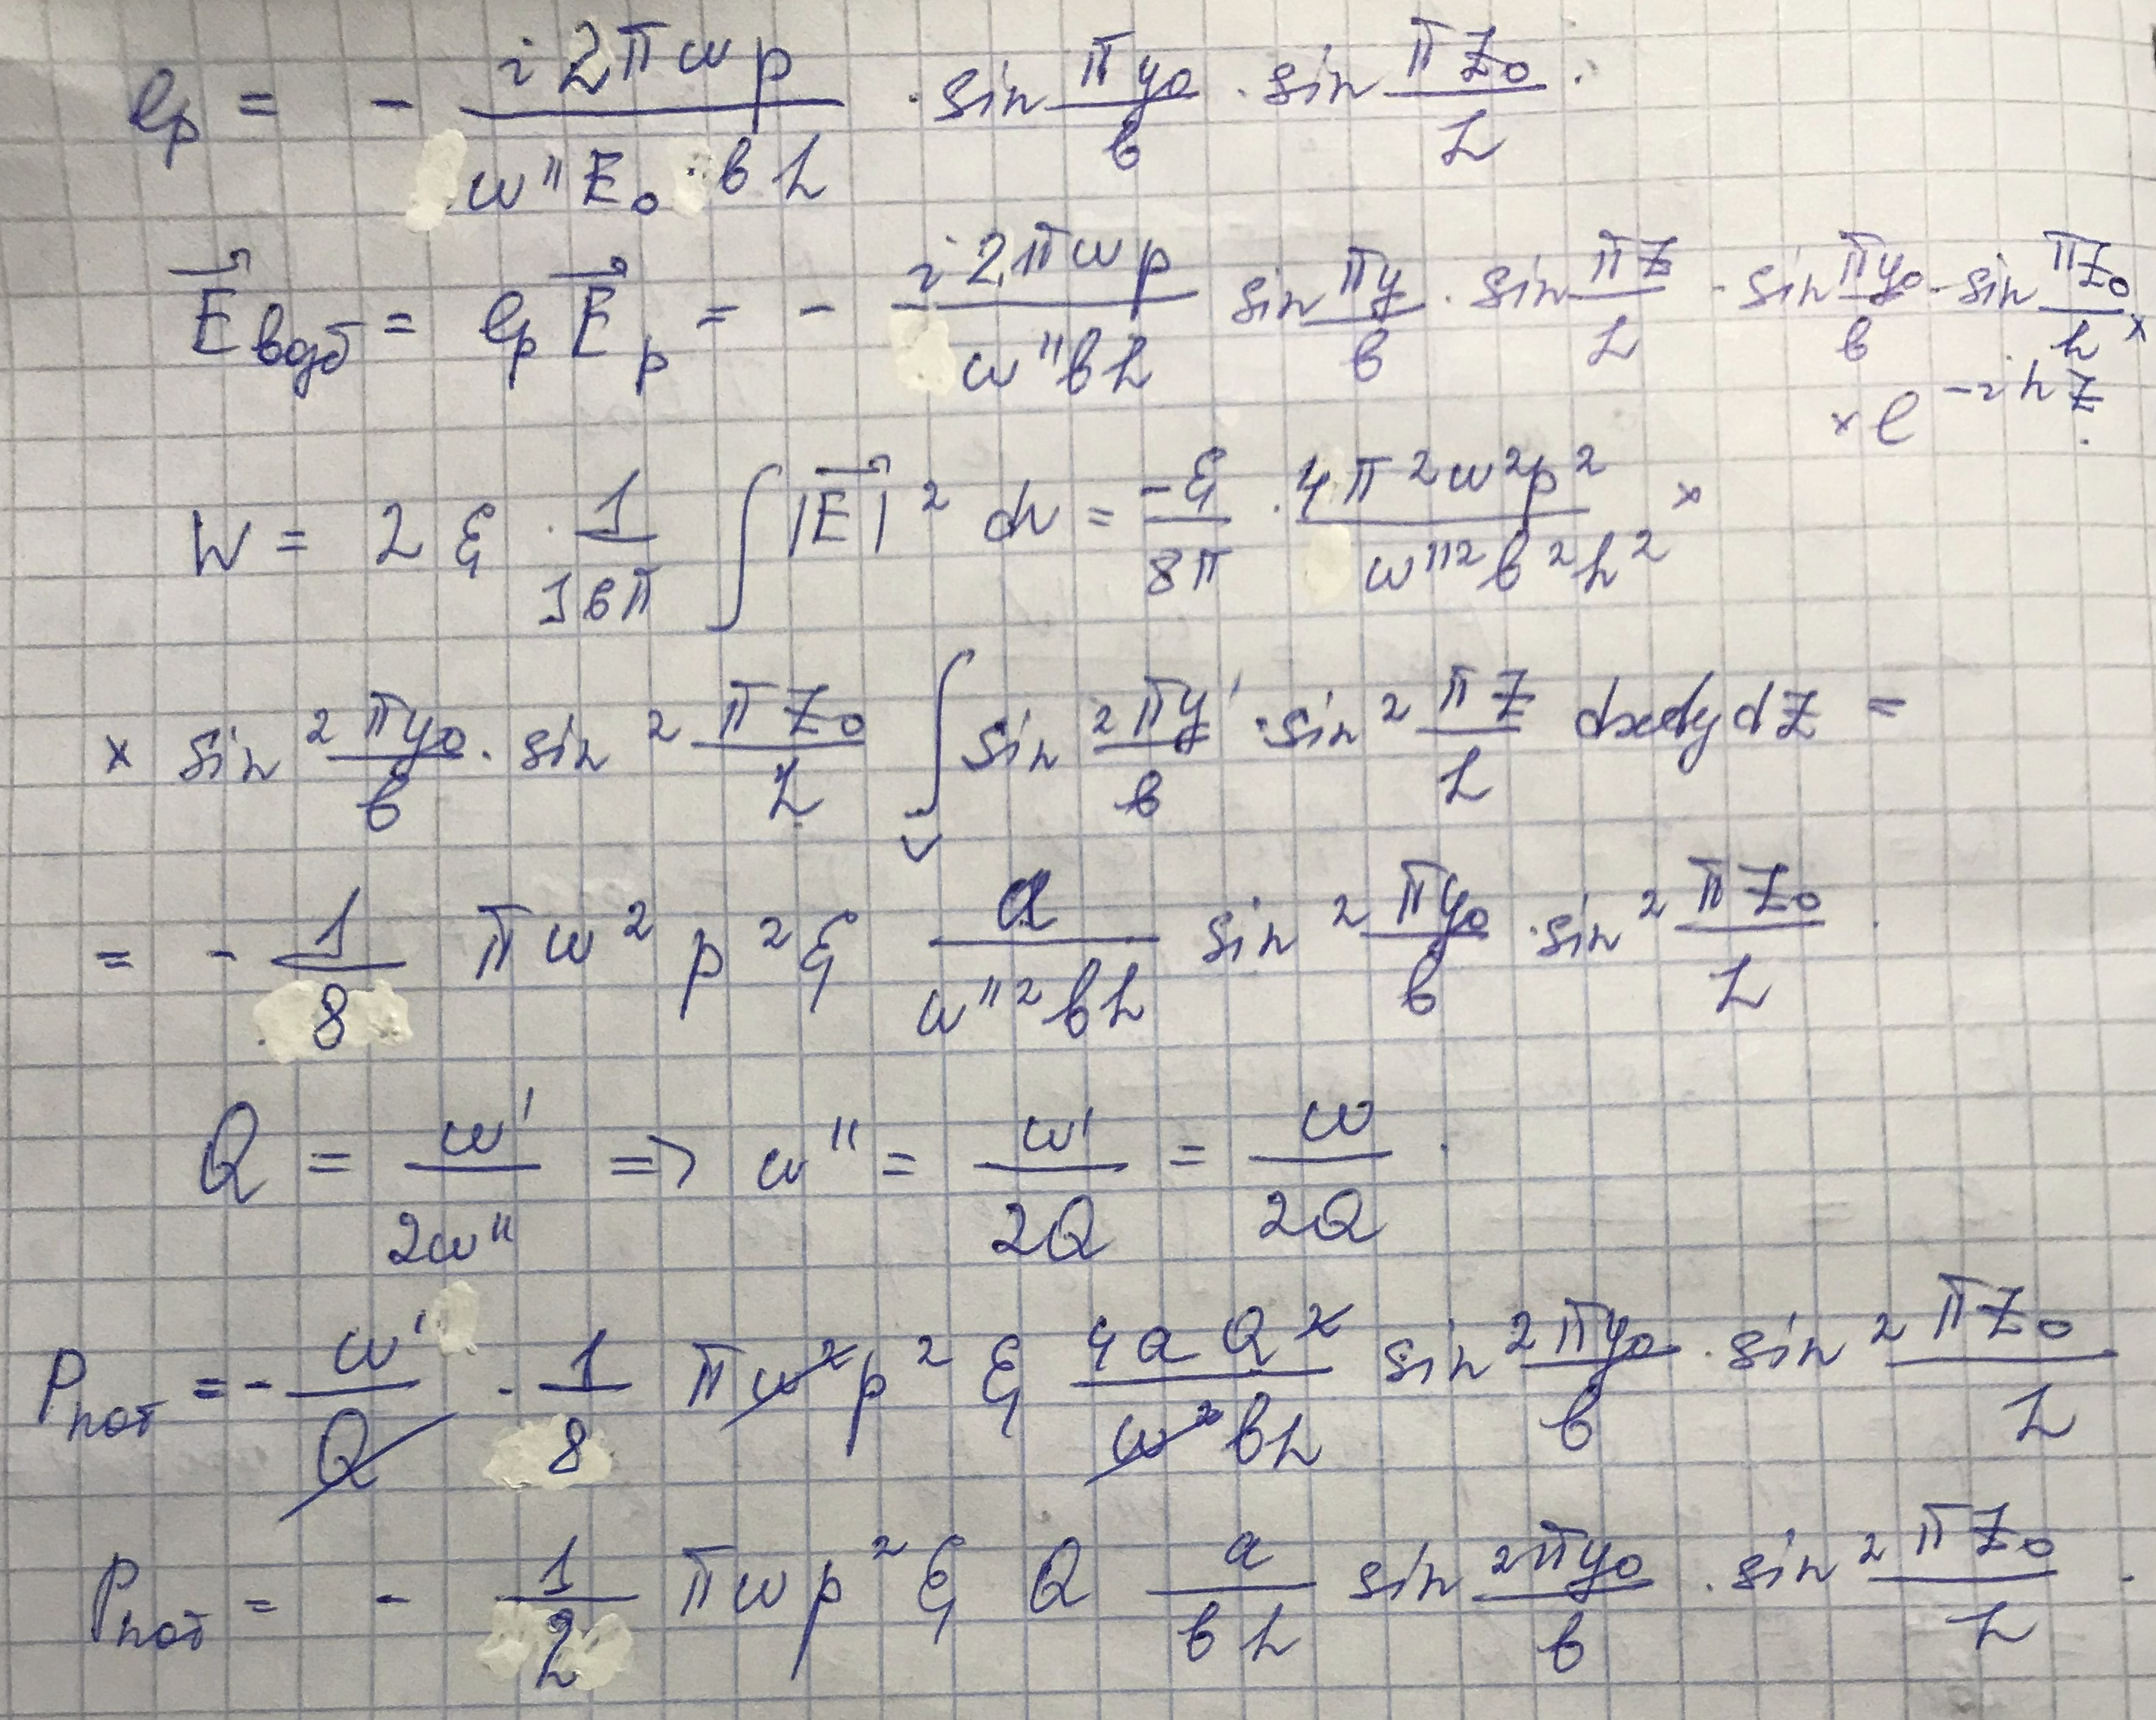 e_p = - \frac{i 2πωp}{ω''E_0 · bL} · sin \frac{πy_0}{b} · sin \frac{πz_0}{L} .
\vec{E}_{возб} = e_p \vec{E}_p = - \frac{i 2πωp}{ω''bL} sin \frac{πy}{b} · sin \frac{πz}{L} · sin \frac{πy_0}{b} · sin \frac{πz_0}{L} ×
× e^{-ihz} .
W = 2ε · \frac{1}{16π} ∫ |\vec{E}|^2 dv = \frac{-ε}{8π} · \frac{4π^2ω^2p^2}{ω''^2b^2L^2} ×
× sin^2 \frac{πy_0}{b} · sin^2 \frac{πz_0}{L} ∫_V sin^2 \frac{πy}{b} · sin^2 \frac{πz}{L} dxdydz =
= - \frac{1}{8} πω^2 p^2 ε \frac{a}{ω''^2bL} sin^2 \frac{πy_0}{b} · sin^2 \frac{πz_0}{L} .
Q = \frac{ω'}{2ω''} => ω'' = \frac{ω'}{2Q} = \frac{ω}{2Q} .
P_{пот} = - \frac{ω'}{Q} · \frac{1}{8} πω^2p^2 ε \frac{4aQ^2}{ω^2bL} sin^2 \frac{πy_0}{b} · sin^2 \frac{πz_0}{L}
P_{пот} = - \frac{1}{2} πωp^2 ε Q \frac{a}{bL} sin^2 \frac{πy_0}{b} · sin^2 \frac{πz_0}{L} .